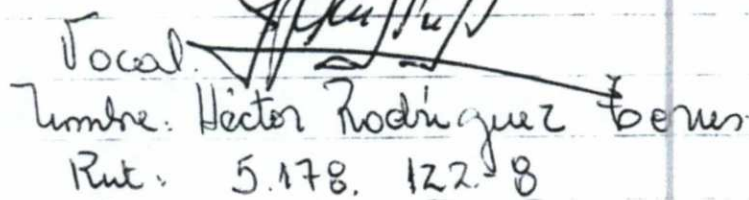 Vocal.
Nombre: Héctor Rodríguez
Rut: 5.178.122-8